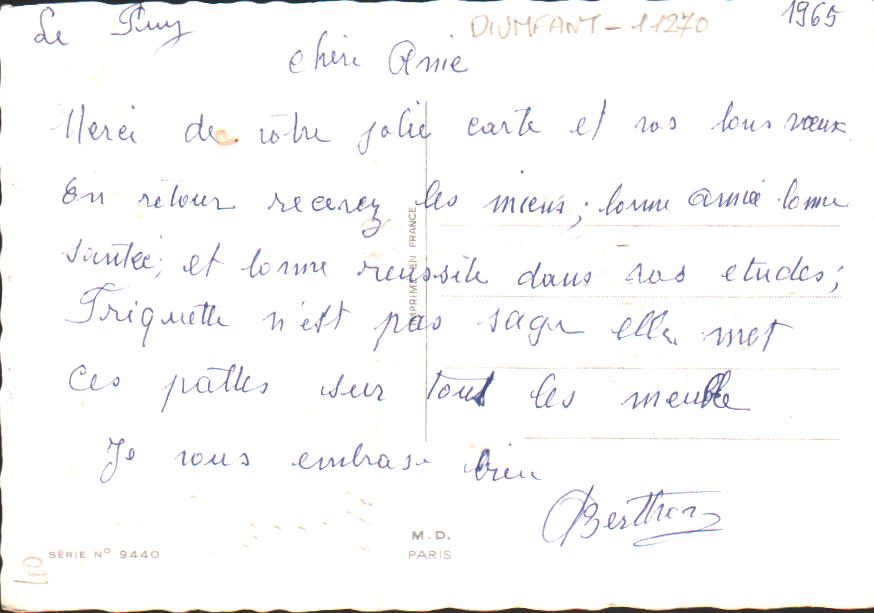 Le Puy
DIUMFANT - 11270
1965
chère Anie
Merci de votre jolie carte et vos bons vœux
En retour recevez les miens; bonne année bonne
santée; et bonne reussite dans vos etudes;
Friquette n'est pas sage elle met
ces pattes sur tout les meuble
Je vous embrase bien
Berthon
IMPRIMÉ EN FRANCE
M. D.
PARIS
SÉRIE N° 9440